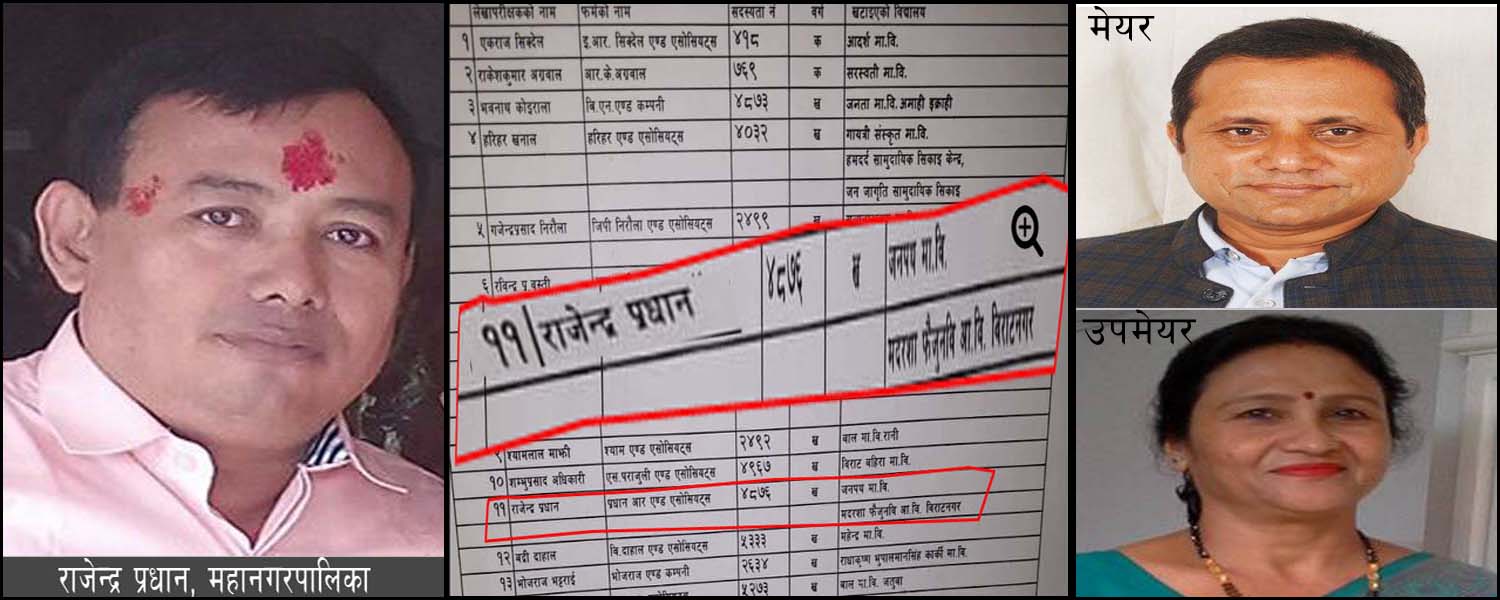 राजेन्द्र प्रधान, महानगरपालिका
लेखापरीक्षकको नाम फर्मको नाम सदस्यता नं वर्ग खटाइएको विद्यालय
१ एकराज सिक्देल इ.आर. सिक्देल एण्ड एसोसियट्स ४१८ क आदर्श मा.वि.
२ राकेशकुमार अग्रवाल आर.के.अग्रवाल ७६९ क सरस्वती मा.वि.
३ भवनाथ कोइराला बि.एन.एण्ड कम्पनी ४८७३ ख जनता मा.वि.अमाही इक्राही
४ हरिहर खनाल हरिहर एण्ड एसोसियट्स ४०३२ ख गायत्री संस्कृत मा.वि.
हमदर्द सामुदायिक सिकाइ केन्द्र,
जन जागृति सामुदायिक सिकाइ
५ गजेन्द्रप्रसाद निरौला जिपी निरौला एण्ड एसोसियट्स २४९९ ख
६ रविन्द्र प्र.बस्ती
११ राजेन्द्र प्रधान ४८७६ ख जनपथ मा.वि.
मदरशा फैजुनवि आ.वि. बिराटनगर
९ श्यामलाल माझी श्याम एण्ड एसोसियट्स २४९२ ख बाल मा.वि.रानी
१० शम्भुप्रसाद अधिकारी एस.पराजुली एण्ड एसोसियट्स ४९६७ ख विराट बहिरा मा.वि.
११ राजेन्द्र प्रधान प्रधान आर एण्ड एसोसियट्स ४८७६ ख जनपथ मा.वि.
मदरशा फैजुनवि आ.वि. बिराटनगर
१२ बद्री दाहाल बि.दाहाल एण्ड एसोसियट्स ५३३३ ख महेन्द्र मा.वि.
१३ भोजराज भट्टराई भोजराज एण्ड कम्पनी २६३४ ख राधाकृष्ण भुपालमानसिंह कार्की मा.वि.
५२७३ ख बाल मा.वि. जतुवा
मेयर
उपमेयर